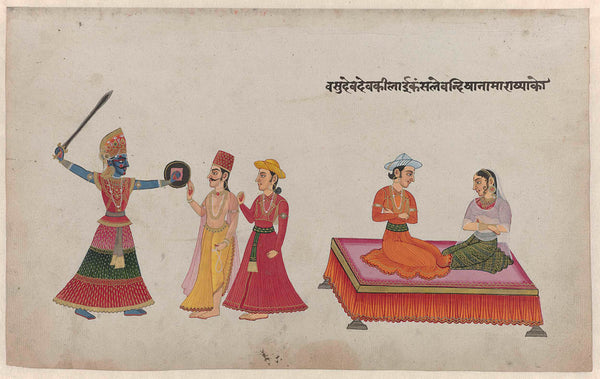 वसुदेवदेवकीलाईकंसलेवन्दिषानामाराष्याको